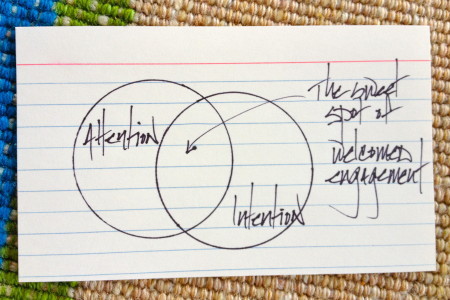 Attention
Intention
The sweet
spot of
welcomed
engagement